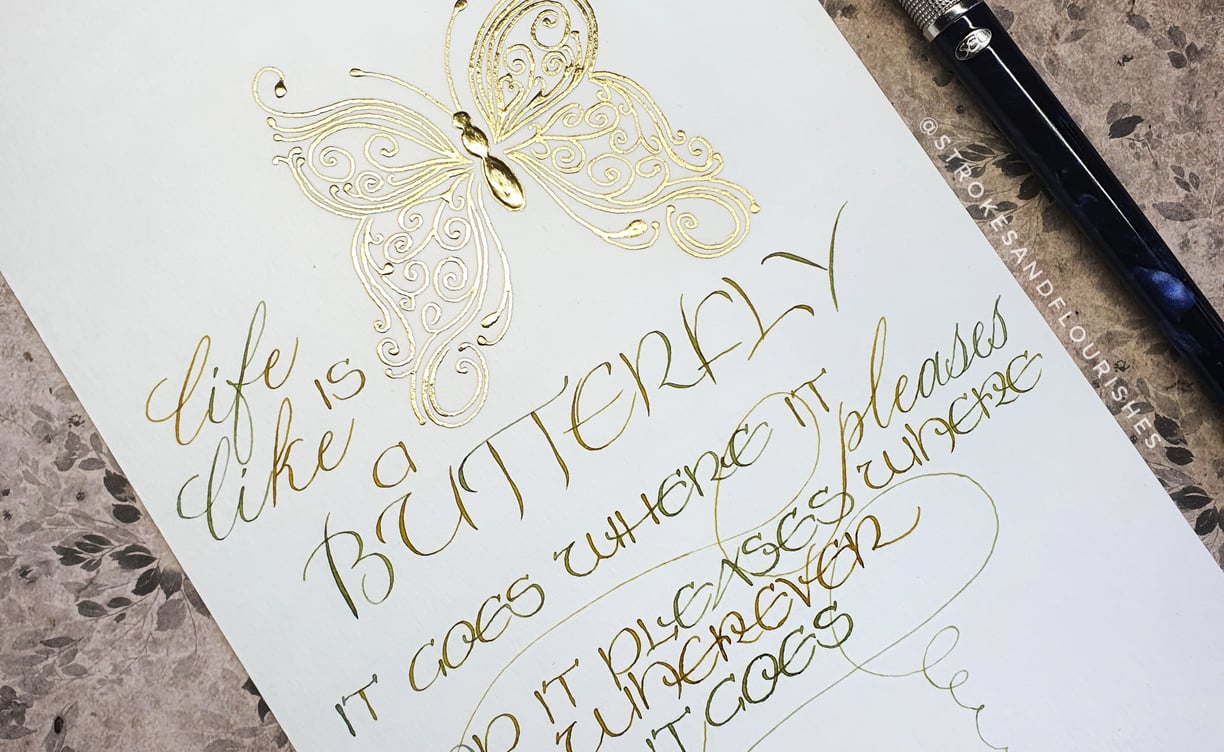 life is
like a
BUTTERFLY
IT GOES WHERE IT pleases
IT PLEASES WHERE
WHEREVER
IT GOES
@STROKESANDFLOURISHES